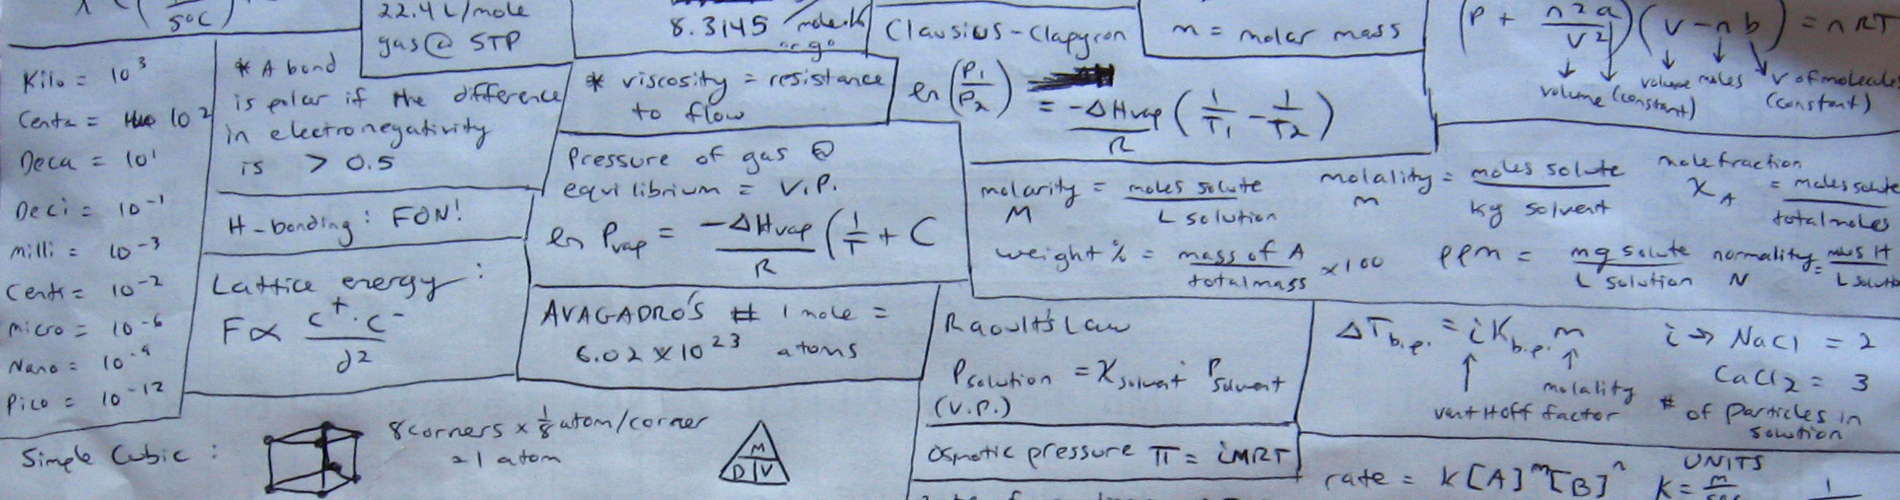 5°C
22.4 L/mole
gas @ STP
8.3145
mole·K
Clausius-Clapyron
m = molar mass
(P + n²a / V²)(V - nb) = nRT
volume (constant)
volume moles
v of molecules
(constant)
Kilo = 10³
Centa = 10²
Deca = 10¹
Deci = 10⁻¹
milli = 10⁻³
Centi = 10⁻²
micro = 10⁻⁶
Nano = 10⁻⁹
Pico = 10⁻¹²
* A bond
is polar if the difference
in electronegativity
is > 0.5
H-bonding: FON!
Lattice energy:
F ∝ c⁺·c⁻ / d²
* viscosity = resistance
to flow
ln (P₁/P₂) = -ΔHvap / R (1/T₁ - 1/T₂)
Pressure of gas @
equilibrium = V.P.
ln Pvap = -ΔHvap / R (1/T + C
AVAGADRO'S # 1 mole =
6.02 x 10²³ atoms
molarity = moles solute / L solution
M
molality = moles solute / kg solvent
m
mole fraction
X_A = moles solute / total moles
weight % = mass of A / total mass x 100
ppm = mg solute / L solution
normality = moles H / L solution
N
Raoult's Law
Psolution = Xsolvent · Psolvent
(V.P.)
Osmotic pressure π = iMRT
ΔTb.p. = i Kb.p. m
molality
vant Hoff factor
i → NaCl = 2
CaCl₂ = 3
# of particles in
solution
Simple Cubic:
8 corners x 1/8 atom/corner
= 1 atom
M
D V
rate = K[A]ᵐ[B]ⁿ
UNITS
K =